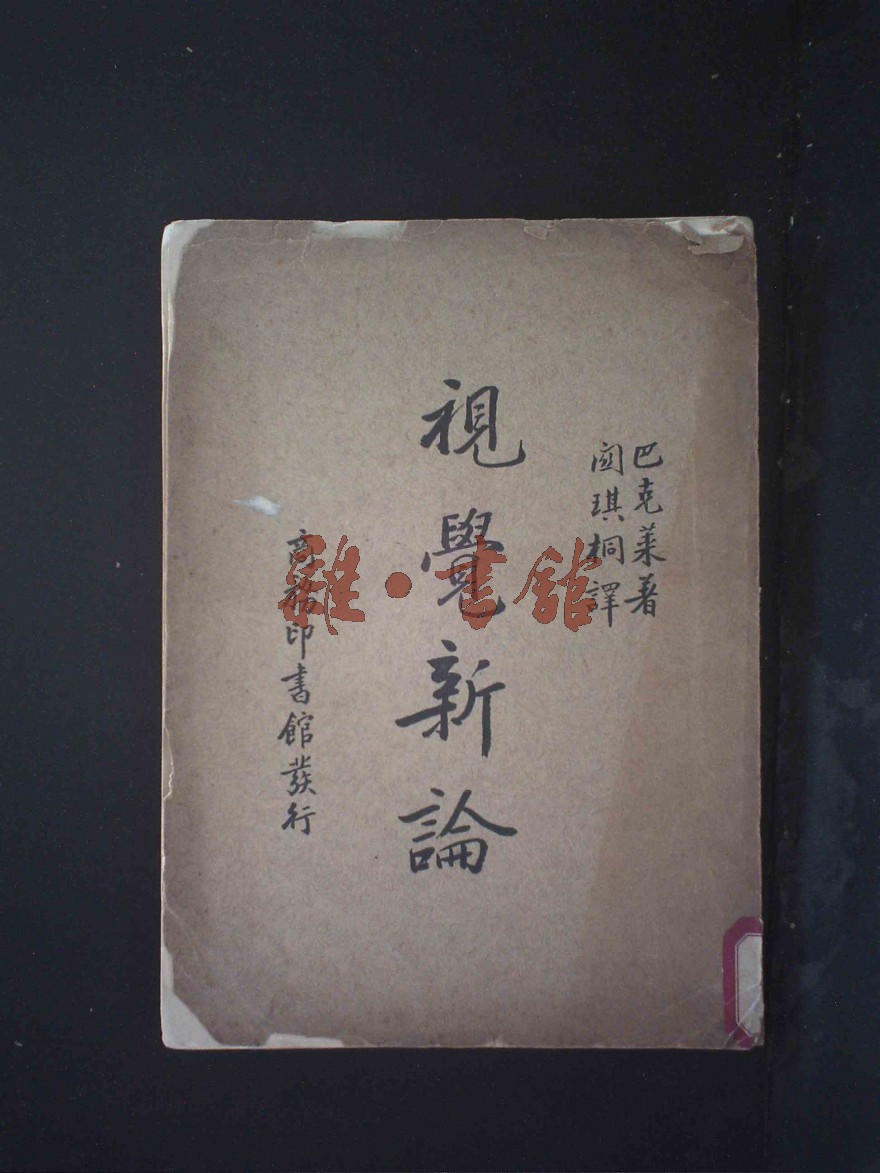 巴克萊著
関琪桐譯
視覺新論
商務印書館發行
雜·書館